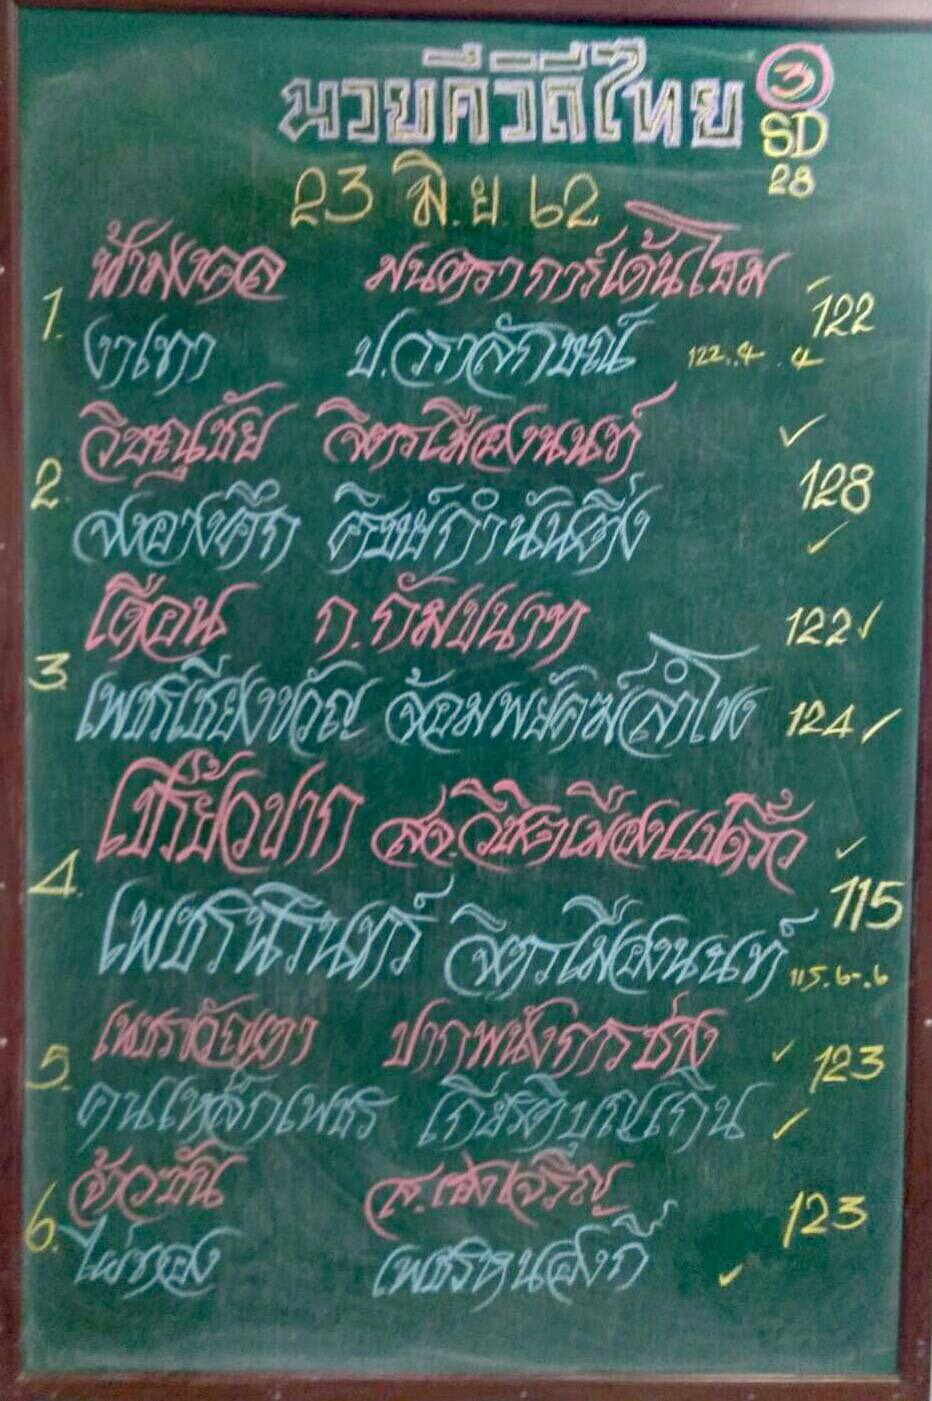 มวยดีวิถีไทย 3 SD 28
23 มิ.ย. 62
1. ฟ้ามงคล มนตราการ์เด้นโฮม 122
งาเทา ป.วราลักษณ์ 122.4 .4
2. วิษณุชัย จิตรเมืองนนท์ 128
สองคึก ศิษย์กำนันติ่ง
3. เดือน ก.กัมปนาท 122
เพชรเชียงขวัญ จ้อมพยัคฆ์ลำโขง 124
4. เขี้ยวปาก สจ.วิชิตเมืองแปดริ้ว 115
เพชรนรินทร์ จิตรเมืองนนท์ 115.6-.6
5. เพชรกัญตา ปากพนังการช่าง 123
คนเหล็กเพชร เกียรติบุญเกิน
6. จ้าวซัน ส.เฮงเจริญ 123
ไผ่ทอง เพชรหนองกี่